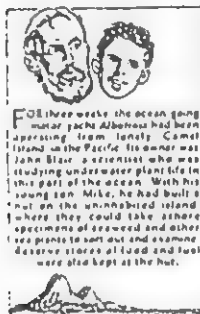 FOR three weeks the ocean going
motor yacht Albatross had been
operating from lonely Camel
Island in the Pacific. Its owner was
John Blair, a scientist who was
studying underwater plant life in
this part of the ocean. With his
young son, Mike, he had built a
hut on the uninhabited island
where they could take ashore
specimens of seaweed and other
sea plants to sort out and examine.
Reserve stores of food and fuel
were also kept at the hut.